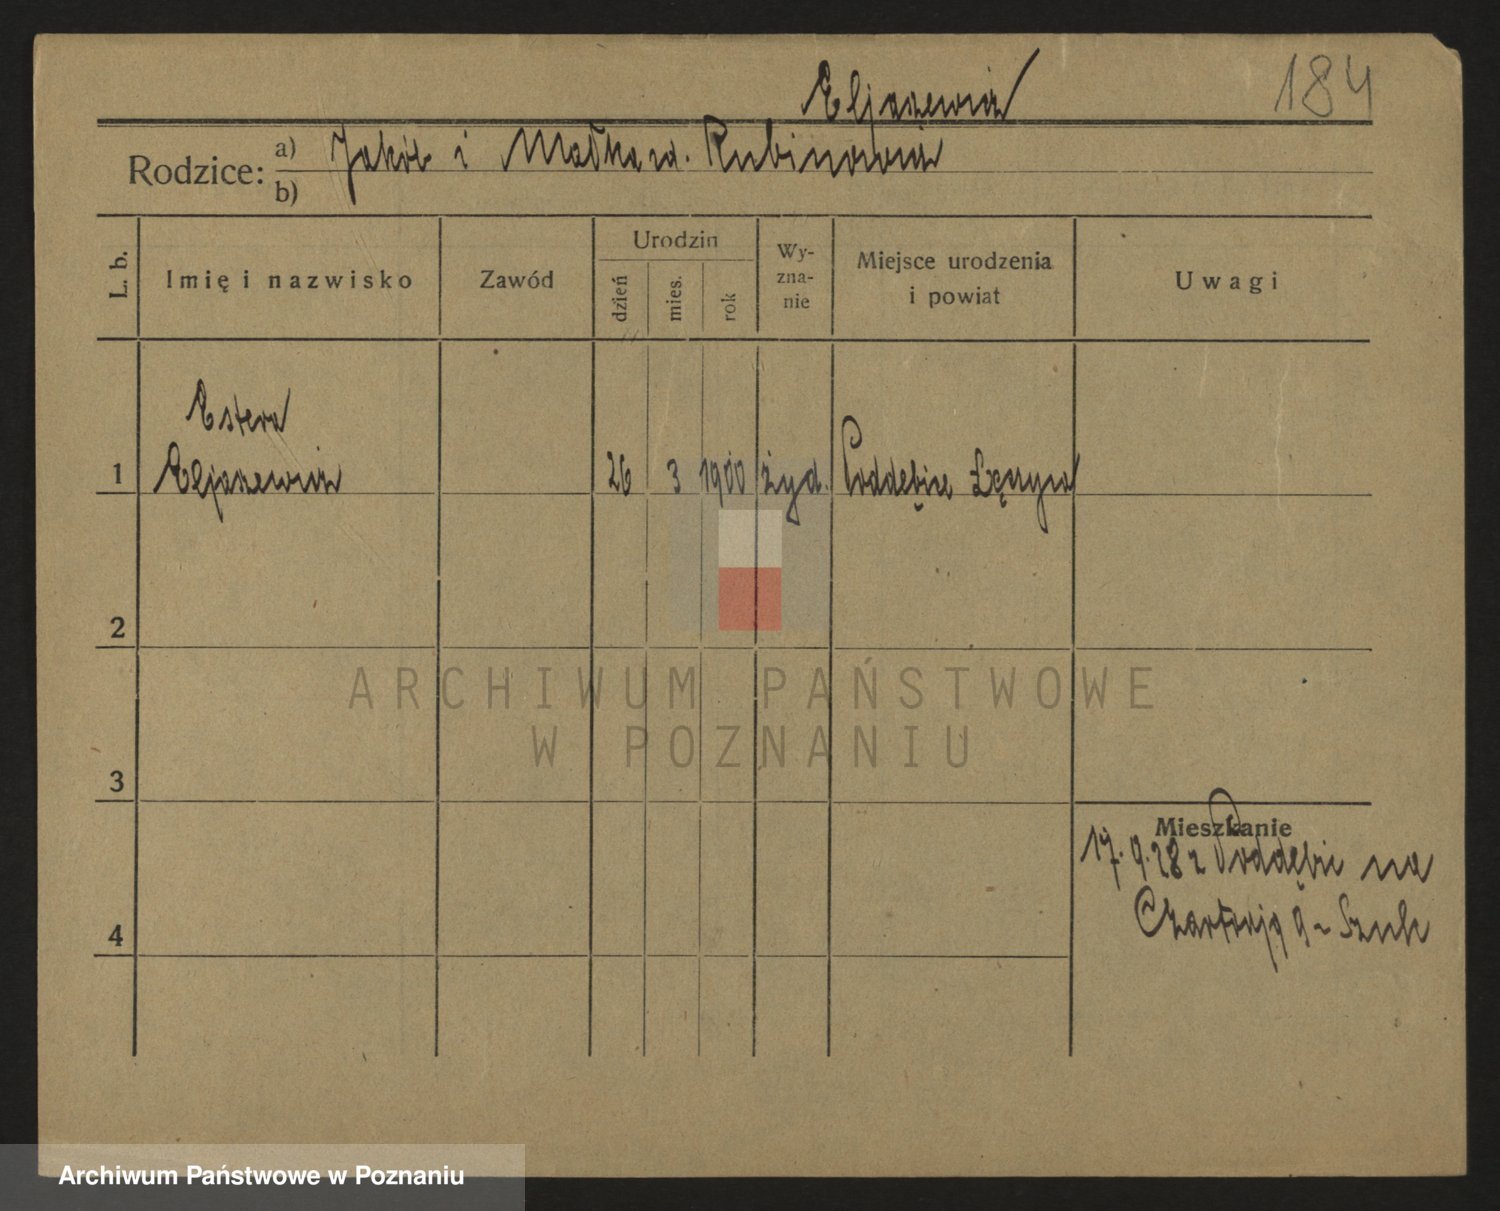 Eljaszewicz
184
Rodzice: a) Jakób i Małka zd. Rubinowicz
b)
L. b. Imię i nazwisko Zawód Urodzin dzień mies. rok Wy-zna-nie Miejsce urodzenia i powiat Uwagi
Estera
1 Eljaszewicz 26 3 1900 żyd. Poddębice Łęczyca
2
ARCHIWUM PAŃSTWOWE
W POZNANIU
3
Mieszkanie
17.9.28 z Poddębic na
4
9
Archiwum Państwowe w Poznaniu